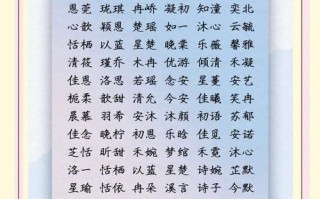 恩莞 珑琪 冉峤 凝初 知潼 奕北
心歆 颖恩 星楚 如一 沐心 云毓
恬栖 以蓝 星楚 晚棠 乐薇 馨雅
清筱 瑾乔 木冉 优游 倾清 禾凝
佳恩 洛思 若瑶 念安 星蔓 安艺
栀柔 歆甜 清允 今安 佳曦 笑冉
晨慕 羽希 安沐 沐颜 初语 苏郁
佳念 晚柠 初恩 乐晗 佳觅 安诺
芝恬 昕甜 禾婉 梦绾 禾霓 沐心
洛一 恬栖 以蓝 冉婉 诗婳 芷默
星瑜 恬依 冉朵 溪言 诗子 以默